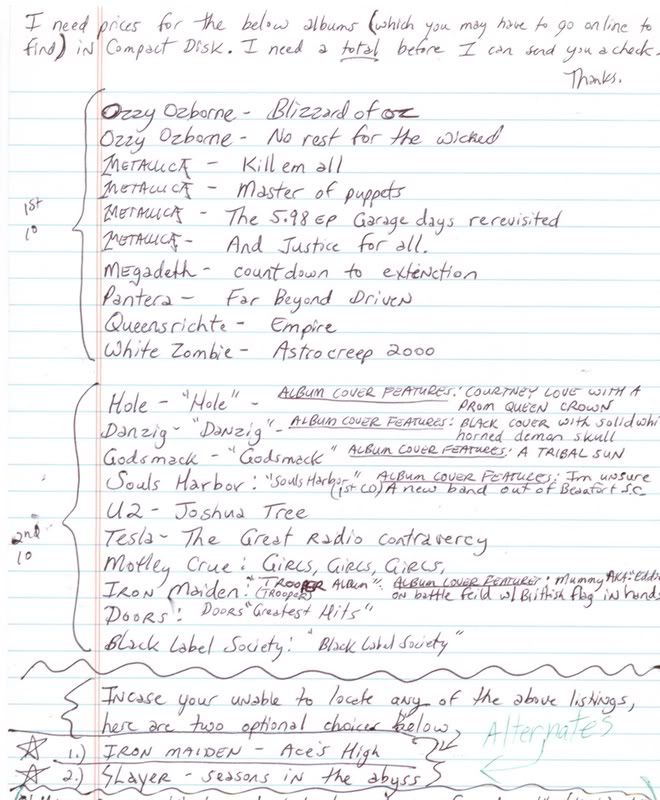 I need prices for the below albums (which you may have to go online to
find) in Compact Disk. I need a total before I can send you a check.
Thanks.
1st
10
Ozzy Ozborne - Blizzard of oz
Ozzy Ozborne - No rest for the wicked
METALLICA - Kill em all
METALLICA - Master of puppets
METALLICA - The 5.98 EP Garage days rerevisited
METALLICA - And Justice for all.
Megadeth - countdown to extenction
Pantera - Far Beyond Driven
Queensrichte - Empire
White Zombie - Astrocreep 2000
2nd
10
Hole - "Hole" - ALBUM COVER FEATURES: COURTNEY LOVE WITH A
PROM QUEEN CROWN
Danzig - "DANZIG" - ALBUM COVER FEATURES: BLACK COVER with solid whi
horned demon skull
Godsmack - "Godsmack" ALBUM COVER FEATURES: A TRIBAL SUN
Souls Harbor: "Souls Harbor" ALBUM COVER FEATURES: Im unsure
(1st CD) A new band out of Beaufort S.C
U2 - Joshua Tree
Tesla - The Great Radio contraversy
Motley Crue: GIRLS, GIRLS, GIRLS,
IRON Maiden: "TROOPER ALBUM" ALBUM COVER FEATURES: Mummy AKA "Eddi
(TROOPERS on battle feild w/ British flag in hands
Doors: Doors "Greatest Hits"
Black Label Society: "Black Label Society"
Incase your unable to locate any of the above listings,
here are two optional choices below,
Alternates
1.) IRON MAIDEN - Ace's High
2.) SLAYER - seasons in the abyss